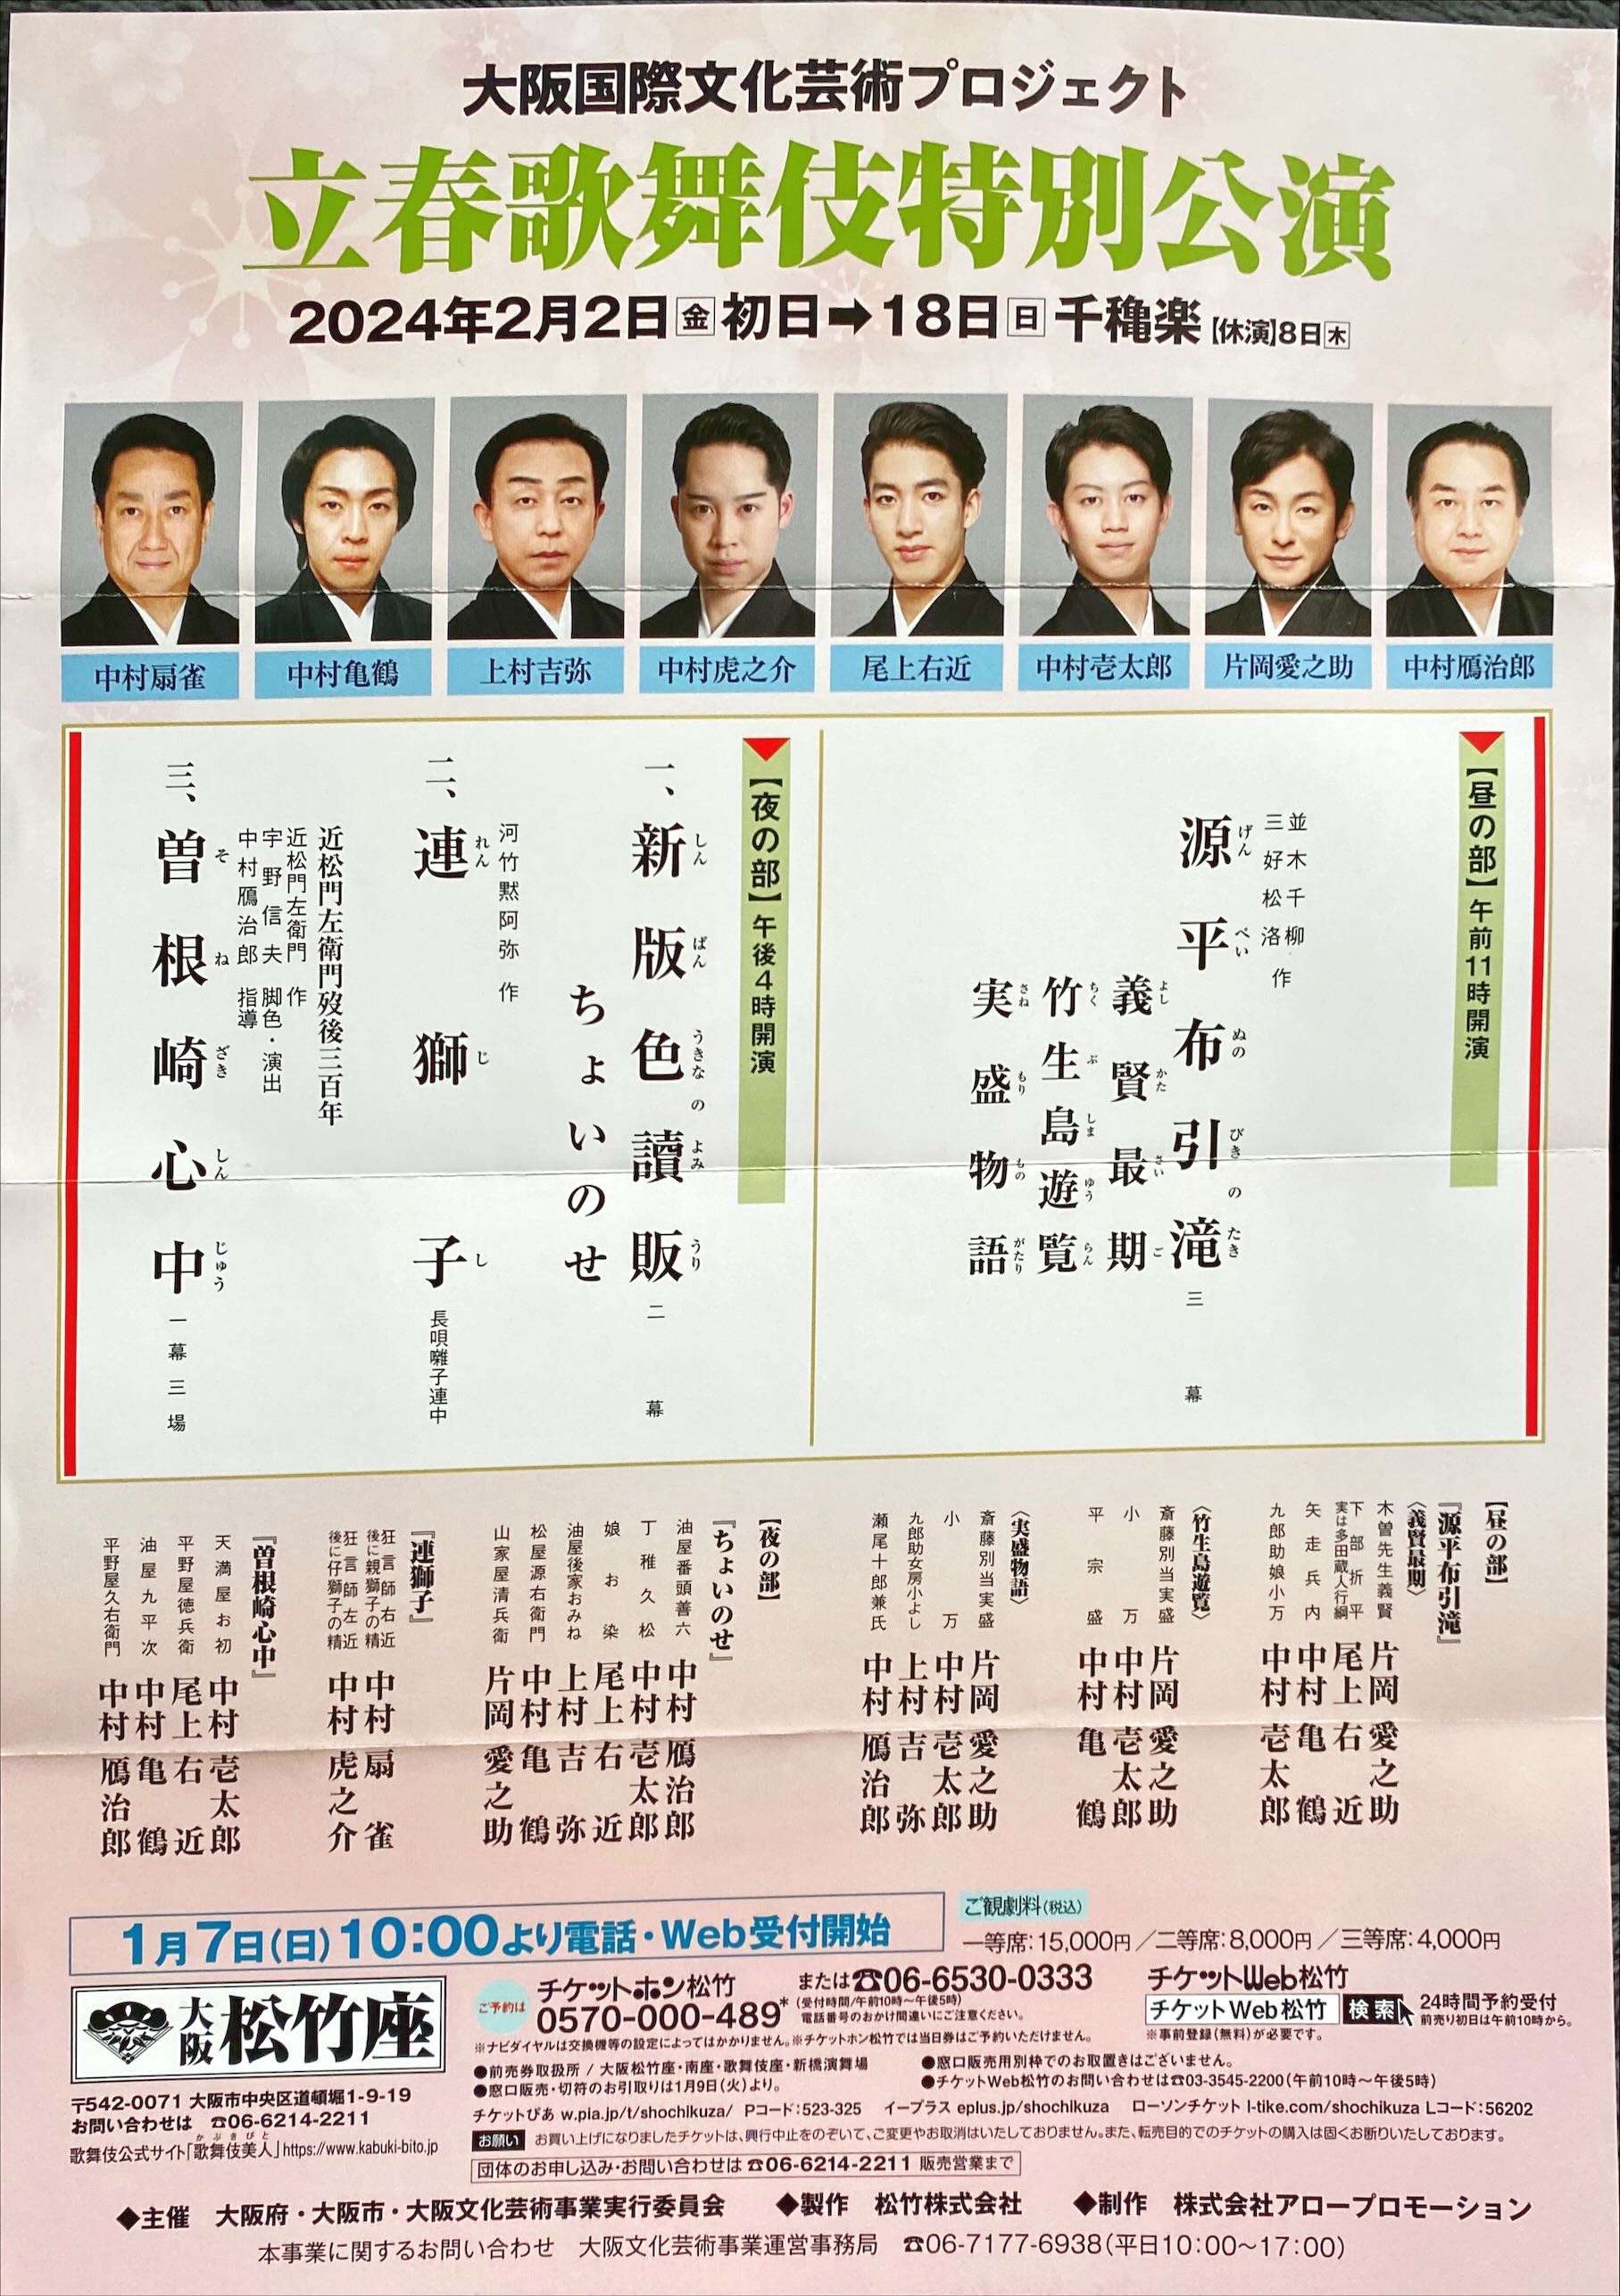 大阪国際文化芸術プロジェクト
立春歌舞伎特別公演
2024年2月2日金初日➡18日日千穐楽【休演】8日木
中村扇雀
中村亀鶴
上村吉弥
中村虎之介
尾上右近
中村壱太郎
片岡愛之助
中村鴈治郎
【昼の部】午前11時開演
並木千柳
三好松洛 作
源平布引滝 三幕
げんぺいぬのびきのたき
義賢最期
よしかたさいご
竹生島遊覧
ちくぶしまゆうらん
実盛物語
さねもりものがたり
【夜の部】午後4時開演
一、新版色讀販 二幕
しんぱんうきなのよみうり
ちょいのせ
河竹黙阿弥 作
二、連獅子 長唄囃子連中
れんじし
近松門左衛門歿後三百年
近松門左衛門 作
宇野信夫 脚色・演出
中村鴈治郎 指導
三、曽根崎心中 一幕三場
そねざきしんじゅう
【昼の部】
『源平布引滝』
〈義賢最期〉
木曽先生義賢 片岡愛之助
下部折平
実は多田蔵人行綱 尾上右近
矢走兵内 中村亀鶴
九郎助娘小万 中村壱太郎
〈竹生島遊覧〉
斎藤別当実盛 片岡愛之助
小万 中村壱太郎
平宗盛 中村亀鶴
〈実盛物語〉
斎藤別当実盛 片岡愛之助
小万 中村壱太郎
九郎助女房小よし 上村吉弥
瀬尾十郎兼氏 中村鴈治郎
【夜の部】
『ちょいのせ』
油屋番頭善六 中村鴈治郎
丁稚久松 中村壱太郎
娘お染 尾上右近
油屋後家おみね 上村吉弥
松屋源右衛門 中村亀鶴
山家屋清兵衛 片岡愛之助
『連獅子』
狂言師右近
後に親獅子の精 中村扇雀
狂言師左近
後に仔獅子の精 中村虎之介
『曽根崎心中』
天満屋お初 中村壱太郎
平野屋徳兵衛 尾上右近
油屋九平次 中村亀鶴
平野屋久右衛門 中村鴈治郎
1月7日(日)10:00より電話・Web受付開始
ご観劇料(税込)
一等席:15,000円／二等席:8,000円／三等席:4,000円
大阪松竹座
〒542-0071 大阪市中央区道頓堀1-9-19
お問い合わせは ☎06-6214-2211
かぶきびと
歌舞伎公式サイト「歌舞伎美人」https://www.kabuki-bito.jp
ご予約は
チケットホン松竹
0570-000-489*
または☎06-6530-0333
(受付時間/午前10時～午後5時)
電話番号のおかけ間違いにご注意ください。
チケットWeb松竹
チケットWeb松竹 検索
24時間予約受付
前売り初日は午前10時から。
※事前登録(無料)が必要です。
※ナビダイヤルは交換機等の設定によってはかかりません。※チケットホン松竹では当日券はご予約いただけません。
●前売券取扱所 / 大阪松竹座・南座・歌舞伎座・新橋演舞場
●窓口販売用別枠でのお取置きはございません。
●窓口販売・切符のお引取りは1月9日(火)より。
●チケットWeb松竹のお問い合わせは☎03-3545-2200(午前10時～午後5時)
チケットぴあ w.pia.jp/t/shochikuza/ Pコード:523-325 イープラス eplus.jp/shochikuza ローソンチケット l-tike.com/shochikuza Lコード:56202
お願い お買い上げになりましたチケットは、興行中止をのぞいて、ご変更やお取消はいたしておりません。また、転売目的でのチケットの購入は固くお断りいたしております。
団体のお申し込み・お問い合わせは ☎06-6214-2211 販売営業まで
◆主催 大阪府・大阪市・大阪文化芸術事業実行委員会 ◆製作 松竹株式会社 ◆制作 株式会社アロープロモーション
本事業に関するお問い合わせ 大阪文化芸術事業運営事務局 ☎06-7177-6938(平日10:00～17:00)